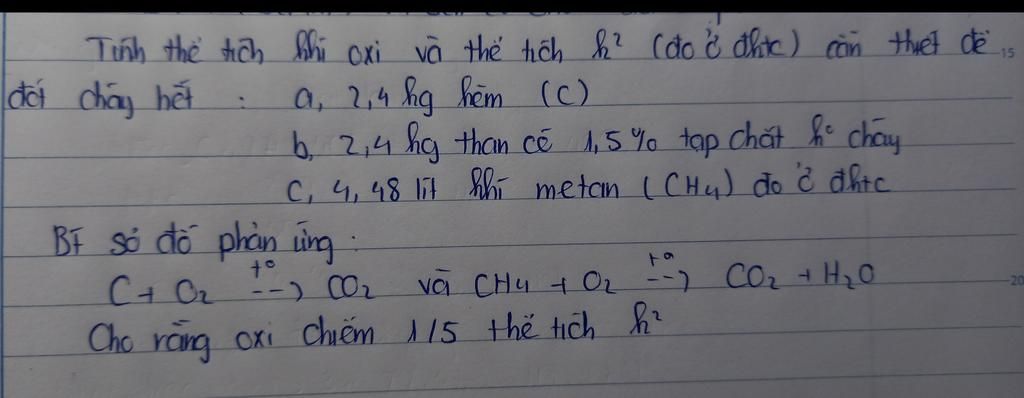 Tính thể tích khí oxi và thể tích k² (đo ở đktc) cần thiết để
đốt cháy hết : a, 2,4 kg kẽm (C)
b, 2,4 kg than có 1,5% tạp chất k° cháy
c, 4,48 lít khí metan (CH4) đo ở đktc
BT sơ đồ phản ứng :
C + O2 --t°--> CO2 và CH4 + O2 --t°--> CO2 + H2O
Cho rằng oxi chiếm 1/5 thể tích k²
15
20